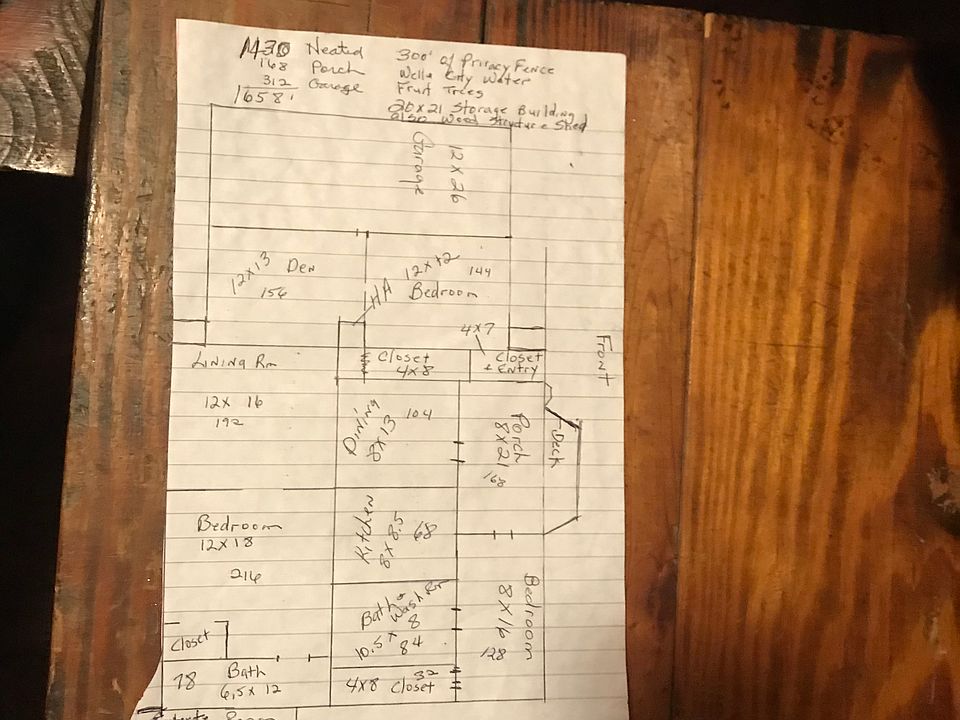 1430 Heated
168 Porch
312 Garage
1658
300' of Privacy Fence
Well & City Water
Fruit Trees
20x21 Storage Building
Wood Structure Shed
12 x 26
Garage
12x13 Den
156
12x12 144
Bedroom
HA
4x7
Closet
4x8
Closet
+ Entry
Front
Lining Rm
12x 16
192
Dining
8x13
104
Porch
8x21
168
Deck
Bedroom
12x18
216
Kitchen
8x8.5
68
Bath &
Wash Rm
8
10.5 x
84
Bedroom
8x16
128
Closet
78 Bath
6.5x 12
32
4x8 Closet